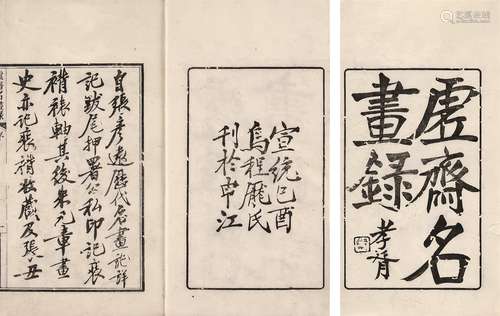 虛齋名
畫錄
孝胥
宣統己酉
烏程龐氏
刊於申江
自張彥遠歷代名畫記詳
記跋尾押署公私印記裒
褙裱軸其後米元章畫
史亦記裒褙收藏及張丑